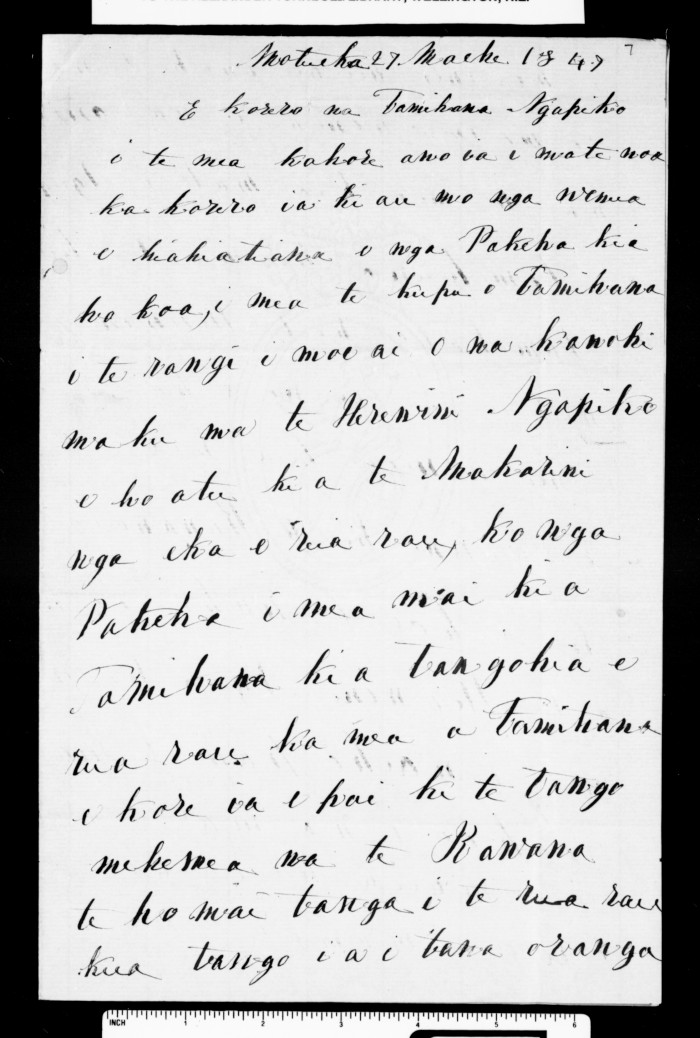 Motueka 27 Maehe 1847
7
E korero na Tamihana Ngapiko
i te mea kahore ano ia i mate noa
ka korero ia ki au mo nga wenua
e hiahiatiana e nga Pakeha kia
ho koa, i mea te kupu o Tamihana
i te rangi i moe ai o na kanohi
ma ku ma te Herewini Ngapiko
e ho atu ki a te Makarini
nga eka e rua rau, ko nga
Pakeha i mea mai ki a
Tamihana ki a tangohia e
rua rau ka mea a Tamihana
e kore ia e pai ki te tango
mehemea na te Kawana
te ho mai tanga i te rua rau
kua tango ia i tana oranga
INCH 1 2 3 4 5 6